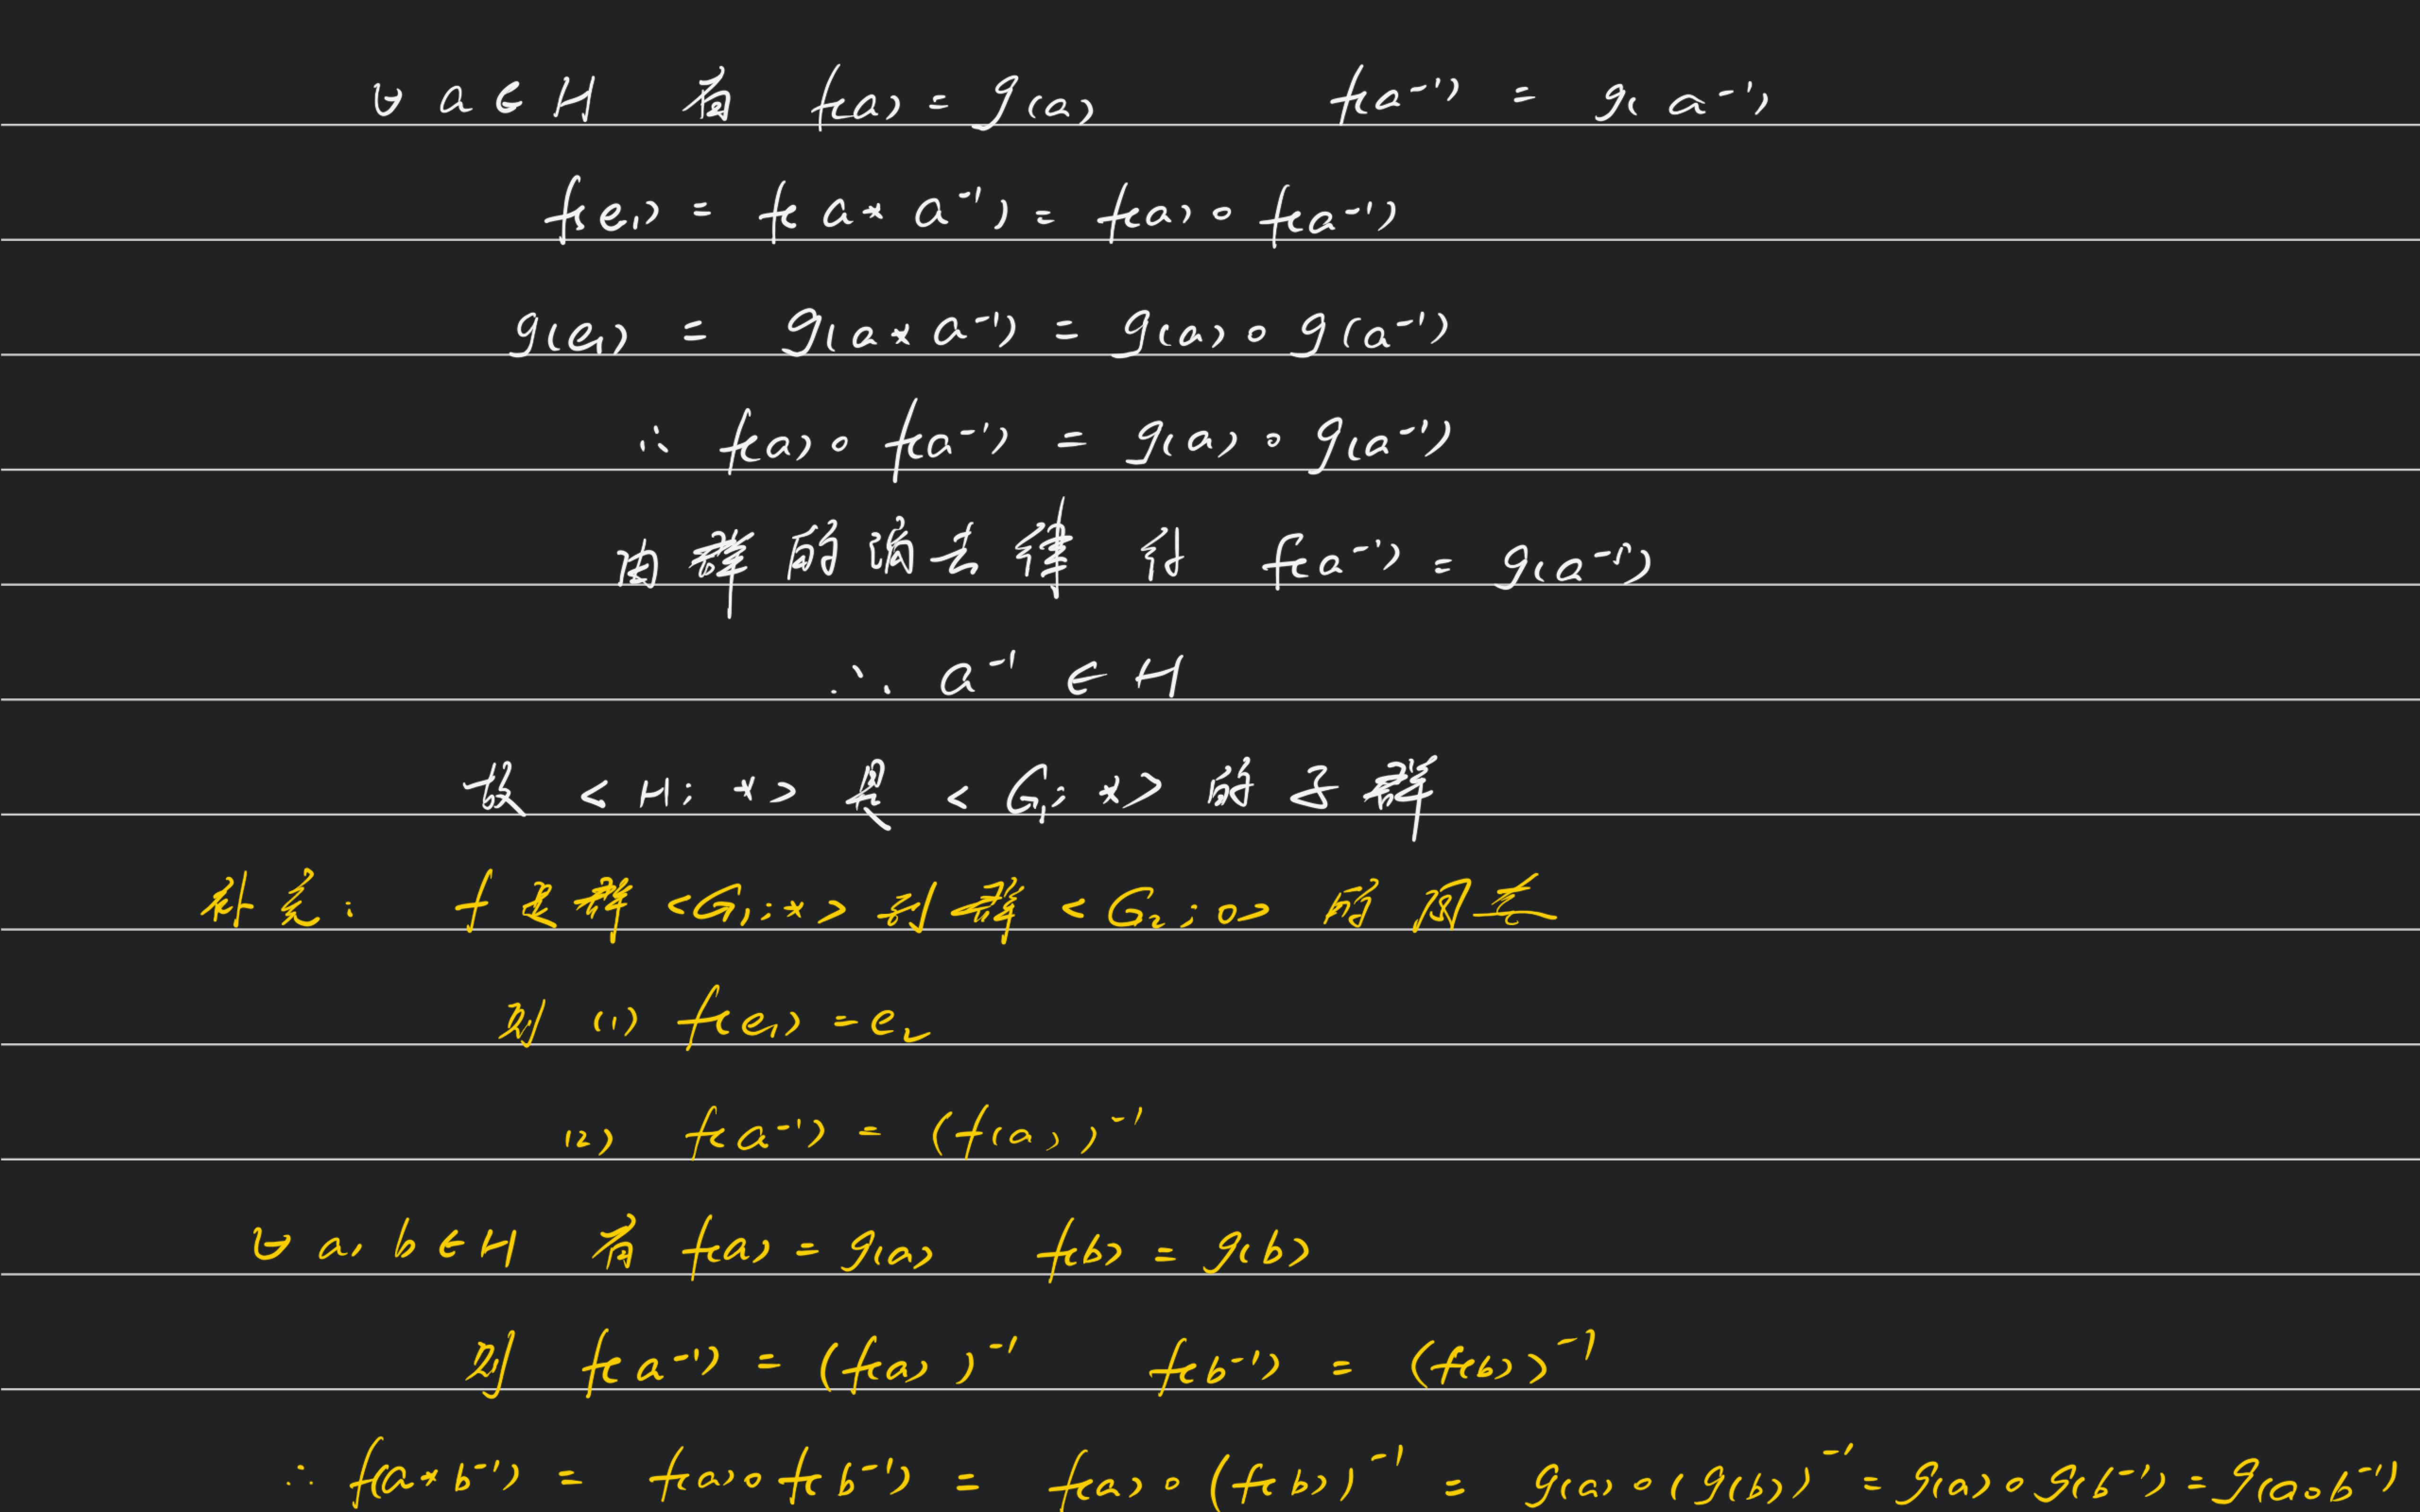 ∀ a ∈ H 有 f(a) = g(a) f(a⁻¹) = g(a⁻¹)
f(e₁) = f(a * a⁻¹) = f(a) ∘ f(a⁻¹)
g(e₁) = g(a * a⁻¹) = g(a) ∘ g(a⁻¹)
∴ f(a) ∘ f(a⁻¹) = g(a) ∘ g(a⁻¹)
由群的消去律得 f(a⁻¹) = g(a⁻¹)
∴ a⁻¹ ∈ H
故 <H; *> 是 <G₁; *> 的子群
补充: f是群 <G₁; *> 到群 <G₂; ∘> 的同态
则 (1) f(e₁) = e₂
(2) f(a⁻¹) = (f(a))⁻¹
∀ a, b ∈ H 有 f(a) = g(a) f(b) = g(b)
则 f(a⁻¹) = (f(a))⁻¹ f(b⁻¹) = (f(b))⁻¹
∴ f(a * b⁻¹) = f(a) ∘ f(b⁻¹) = f(a) ∘ (f(b))⁻¹ = g(a) ∘ (g(b))⁻¹ = g(a) ∘ g(b⁻¹) = g(a ∘ b⁻¹)